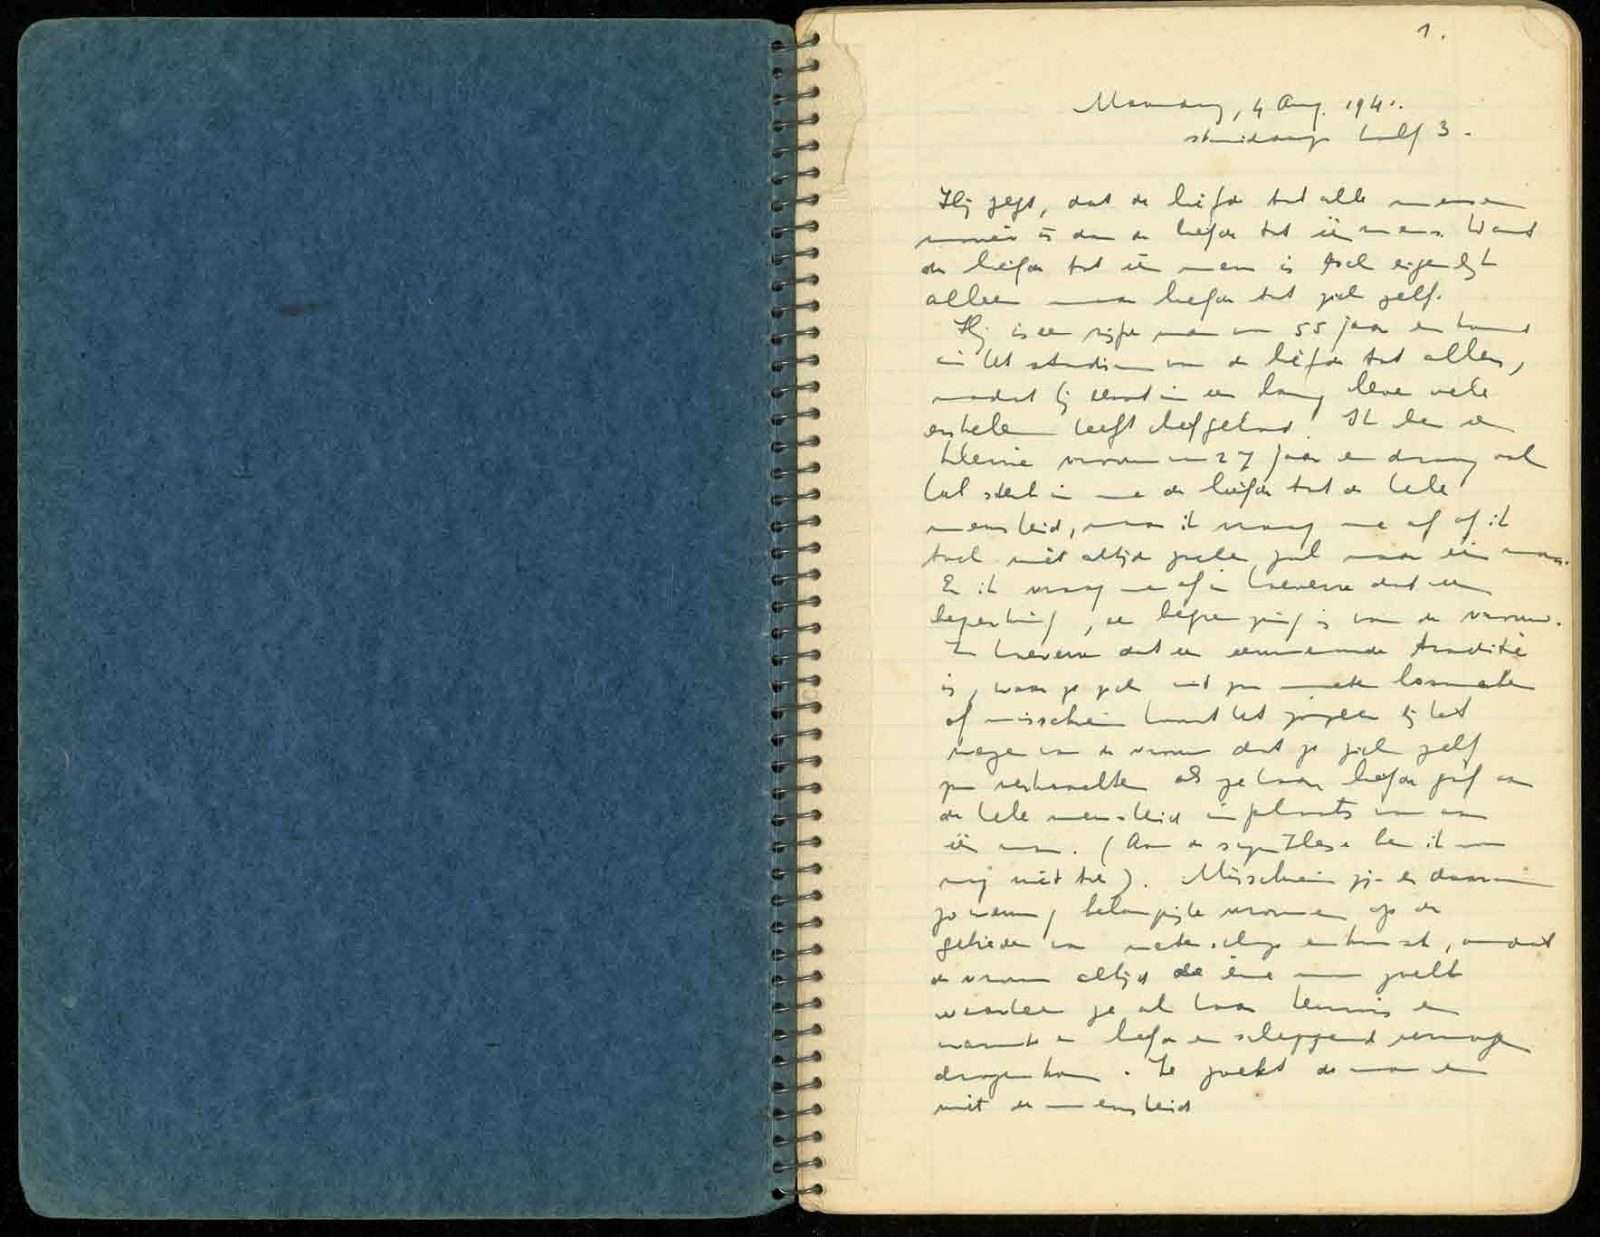 1.
Maandag, 4 Aug. 1941.
's middags half 3.
Hij zegt, dat de liefde tot alle mensen
mooier is dan de liefde tot één mens. Want
de liefde tot één mens is toch eigenlijk
alleen maar liefde tot zich zelf.
Hij is een rijpe man van 55 jaar en komt
in het stadium van de liefde tot allen,
nadat hij eerst in een lang leven vele
enkelen heeft liefgehad. Ik ben een
kleine vrouw van 27 jaar en draag ook
heel sterk in me de liefde tot de hele
mensheid, maar ik vraag me af of ik
toch niet altijd zoeken zal naar één man.
En ik vraag me af in hoeverre dat een
beperking, een begrenzing is van de vrouw.
In hoeverre dat een eeuwenoude traditie
is, waar ze zich uit zou moeten losmaken
of misschien hoort het zozeer bij het
wezen van de vrouw dat ze zich zelf
zou verkrachten als ze haar liefde gaf aan
de hele mensheid inplaats van aan
één man. (Aan de synthese ben ik nog
niet toe). Misschien zijn er daarom
zo weinig belangrijke vrouwen op de
gebieden van wetenschap en kunst, omdat
de vrouw altijd de ene man zoekt
waarheen ze al haar kennis en
warmte en liefde en scheppend vermogen
dragen kan. Ze zoekt de man en
niet de mensheid